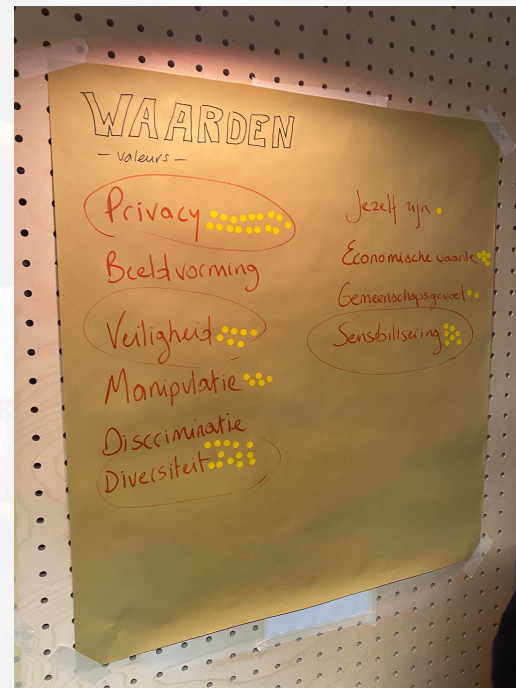 WAARDEN
- valeurs -
Privacy
Beeldvorming
Veiligheid
Manipulatie
Discriminatie
Diversiteit
Jezelf zijn
Economische waarde
Gemeenschapsgevoel
Sensibilisering